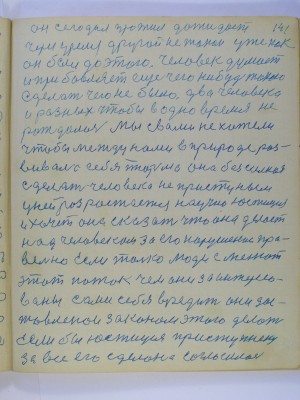 он сегодня прожил дожидает 141
чем умей другой не такой уже как
он был до этого. Человек думает
и прибавляет еще чего нибудь только
сделает чего не было. два человека
и разных чтобы в одно время не
рождалося мы с вами не хотели
чтобы между нами в природе раз-
вивала себя тюрьма она бессильная
сделать человека не приступным
у ней розростается научно юстиция
и хочет она сказать что она дмест
над человеком за его нарушение пра-
вельно если только люди сменют
этот поток чем они заинтересо-
ваны сами себя вредит они зас-
тавленом законом этого делать
если бы юстиция приступнику
за все его сделано согласилася